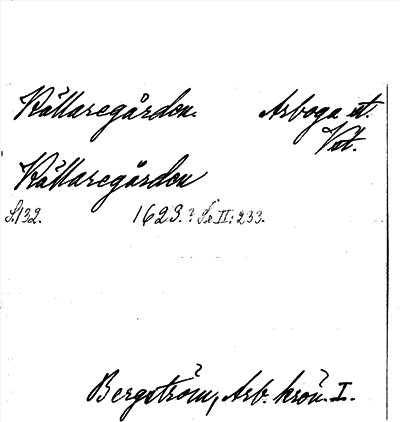 Källaregården. Arboga st.
Vstm.
Källaregården
S.132. 1623.? Sx II: 233.
Bergström, Arb. krön. I.